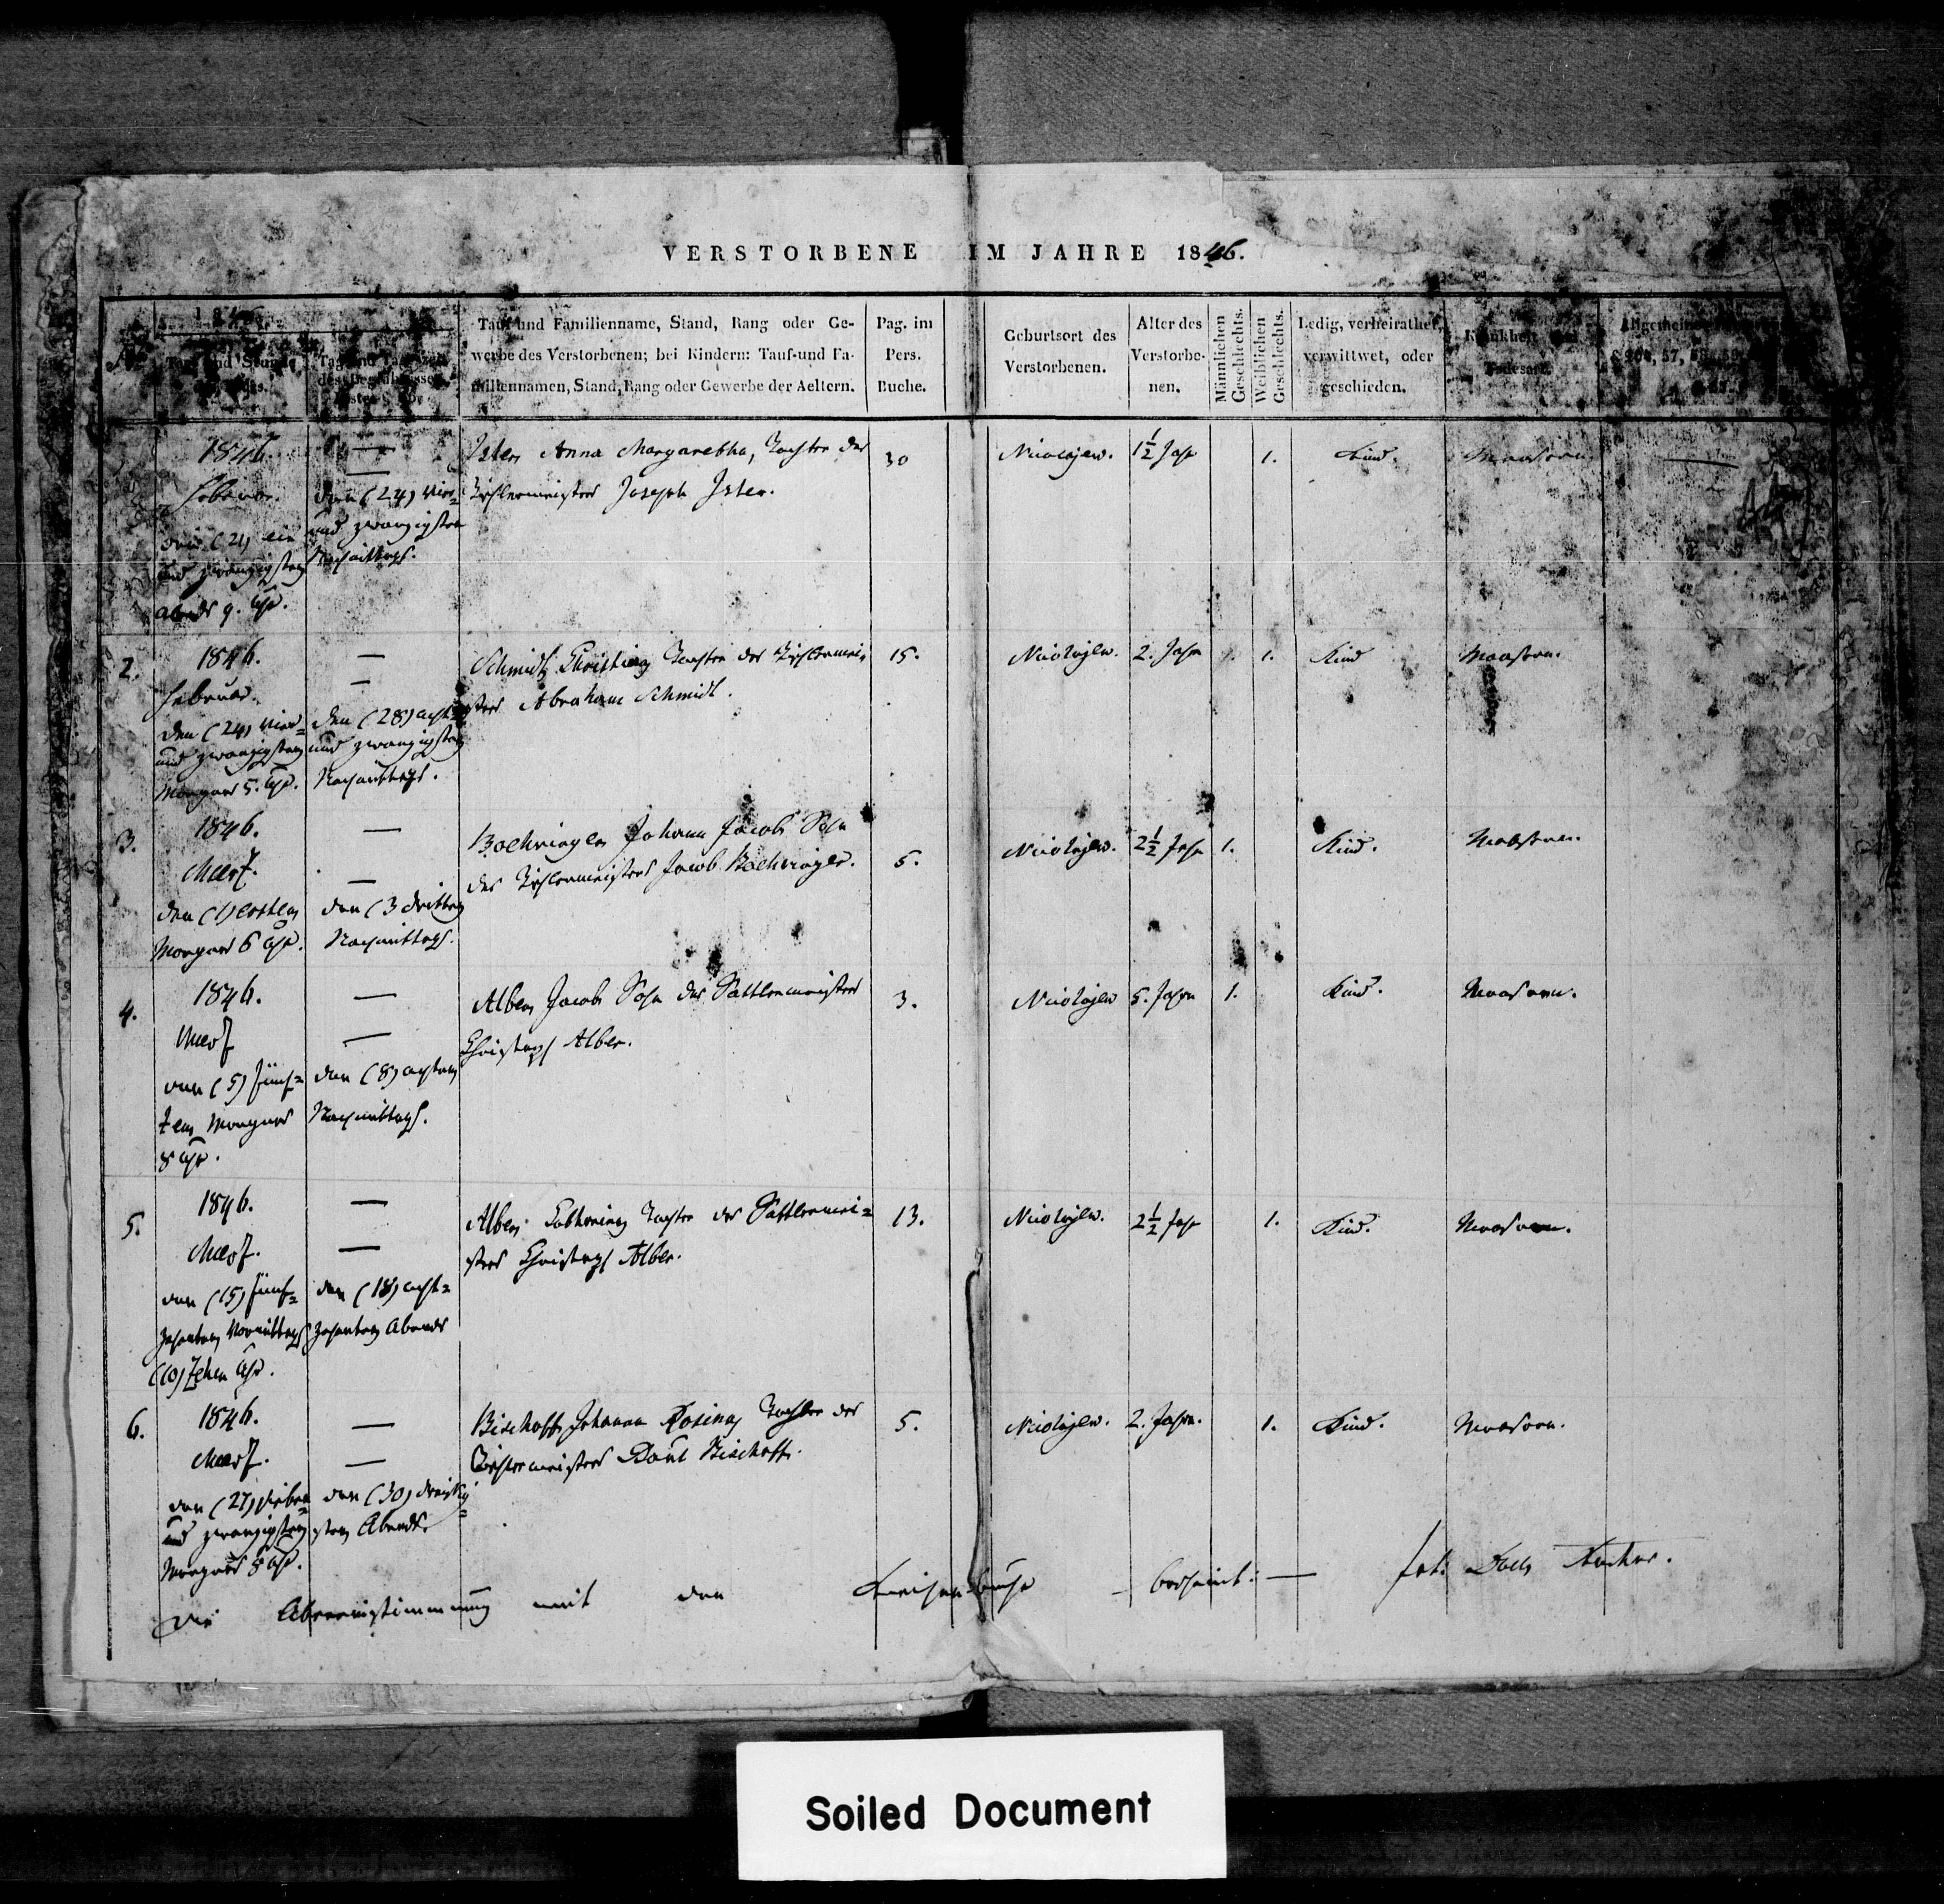 VERSTORBENE IM JAHRE 1846.
Tauf und Familienname, Stand, Rang oder Ge-
werbe des Verstorbenen; bei Kindern: Tauf-und Fa-
miliennamen, Stand, Rang oder Gewerbe der Aeltern.
Pag. im
Pers.
Buche.
Geburtsort des
Verstorbenen.
Alter des
Verstorbe-
nen.
Männlichen
Geschlechts.
Weiblichen
Geschlechts.
Ledig, verheirathet,
verwittwet, oder
geschieden.
Krankheit
Todesart.
1846.
Februar.
den (21) ein
und zwanzigsten
Abends 9. Uhr.
—
—
den (24) vier=
und zwanzigsten
Nachmittags.
Isler Anna Margaretha, Tochter des
Tischlermeisters Joseph Isler.
30
Nicolajew.
1½ Jahr
1.
Kind.
Masern.
2.
1846.
Februar.
den (24) vier=
und zwanzigsten
Morgens 5. Uhr.
—
—
den (28) acht=
und zwanzigsten
Nachmittags.
Schmidt Christina Tochter des Tischlermei-
sters Abraham Schmidt.
15.
Nicolajew.
2. Jahr
1.
Kind
Masern.
3.
1846.
Maerz.
den (1) ersten
Morgens 6 Uhr.
—
—
den (3 dritten
Nachmittags.
Boehringer Johann Jacob Sohn
des Tischlermeisters Jacob Boehringer.
5.
Nicolajew.
2½ Jahr
1.
Kind.
Masern.
4.
1846.
Maerz
den (5) fünf=
ten Morgens
8 Uhr.
—
—
den (8) achten
Nachmittags.
Alber Jacob Sohn des Sattlermeisters
Christoph Alber.
3.
Nicolajew
5. Jahre
1.
Kind.
Masern.
5.
1846.
Maerz.
den (15) fünf=
zehnten Vormittags
(10) Zehen Uhr.
—
—
den (18) acht=
zehnten Abends
Alber Catharina Tochter des Sattlermei=
sters Christoph Alber.
13.
Nicolajew.
2½ Jahr
1.
Kind.
Masern.
6.
1846.
Maerz.
den (27) sieben=
und zwanzigsten
Morgens 8 Uhr.
—
—
den (30) dreißig=
sten Abends.
Bischoff Johanna Rosina Tochter des
Tischlermeisters Paul Bischoff.
5.
Nicolajew.
2. Jahre.
1.
Kind.
Masern.
Die Übereinstimmung mit dem Kirchenbuche
Soiled Document